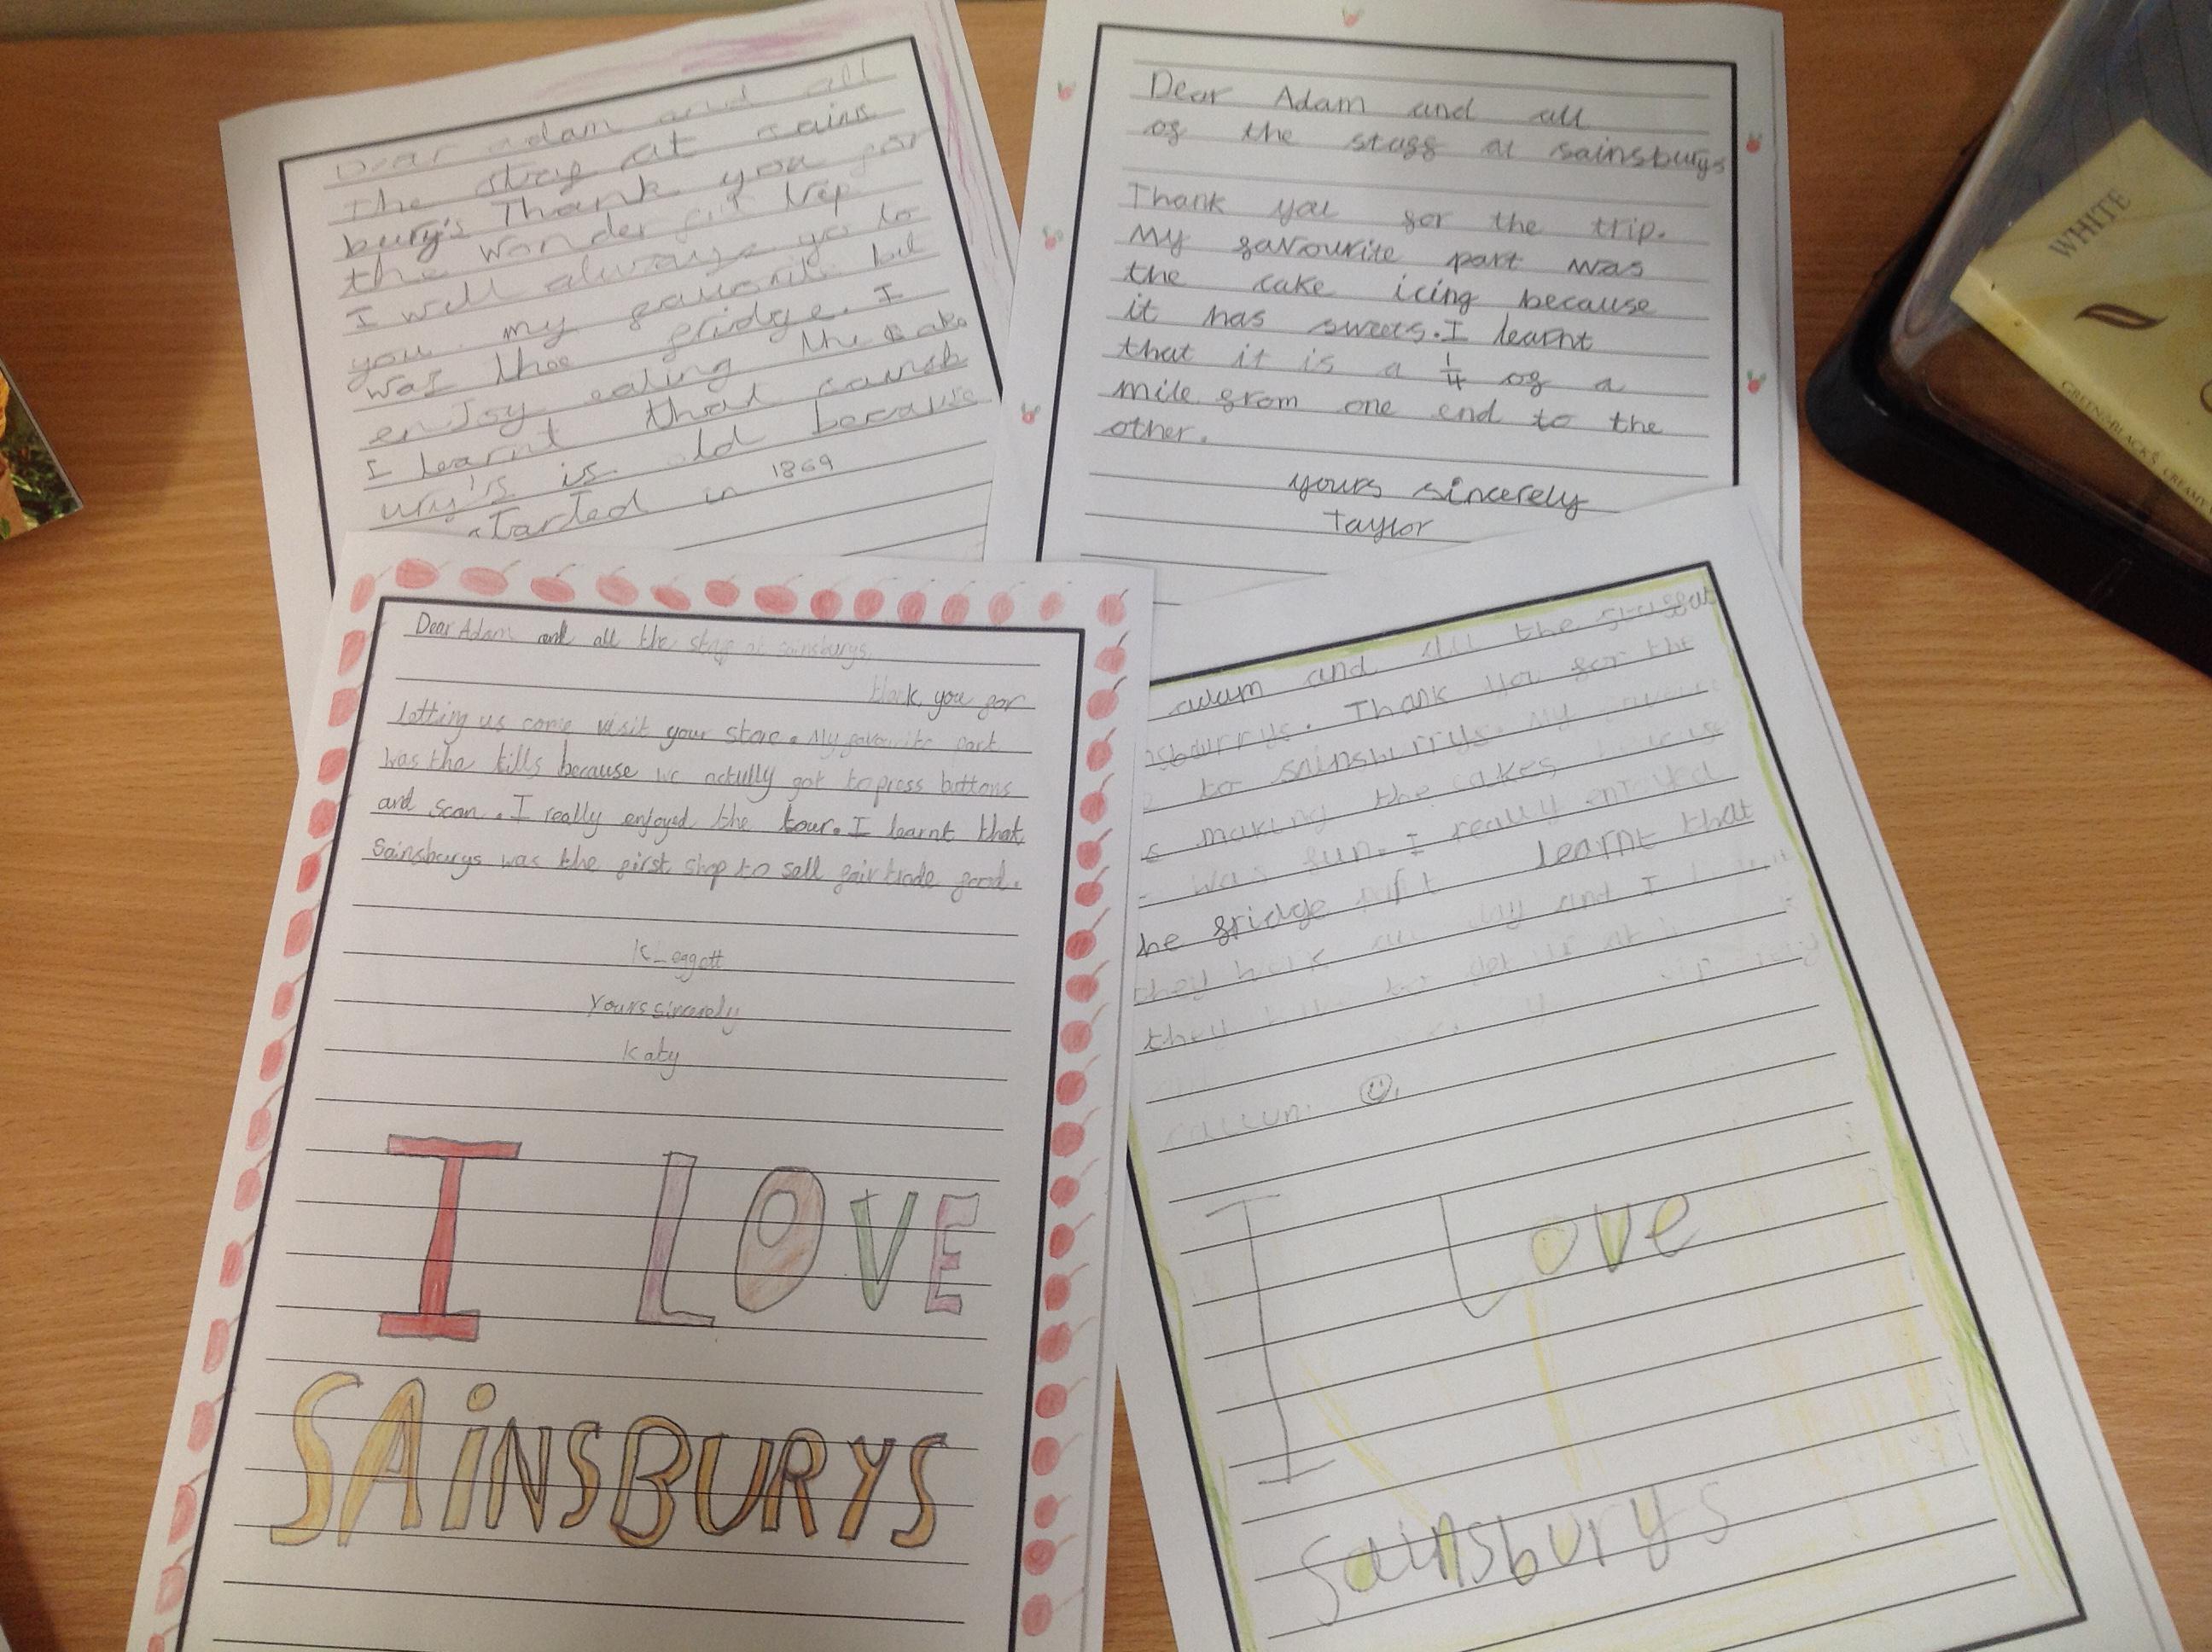 Dear adam and all
the staf at sains
bury's Thank you for
the wonderful trip
I will always go to
you. my favorite bit
was the fridge. I
enjoy eating the cake
I learnt that sainsb
ury's is old because
started in 1869
Dear Adam and all
of the staff at sainsburys
Thank you for the trip.
My favourite part was
the cake icing because
it has sweets. I learnt
that it is a 1/4 of a
mile from one end to the
other.
yours sincerely
Taylor
Dear Adam and all the staf at sainsburys.
thank you for
letting us come visit your store. My favourite part
was the tills because we actully got to press buttons
and scan. I really enjoyed the tour. I learnt that
Sainsburys was the first shop to sell fairtrade food.
yours sincerely
Katy
I LOVE
SAiNSBURYS
adam and all the staff at
sburrys. Thank you for the
to sainsburrys. My
making the cakes
was fun. I really enjoyed
he fridge learnt that
they work day and I
they to get
I Love
Sainsburys
WHITE
GREEN & BLACK'S